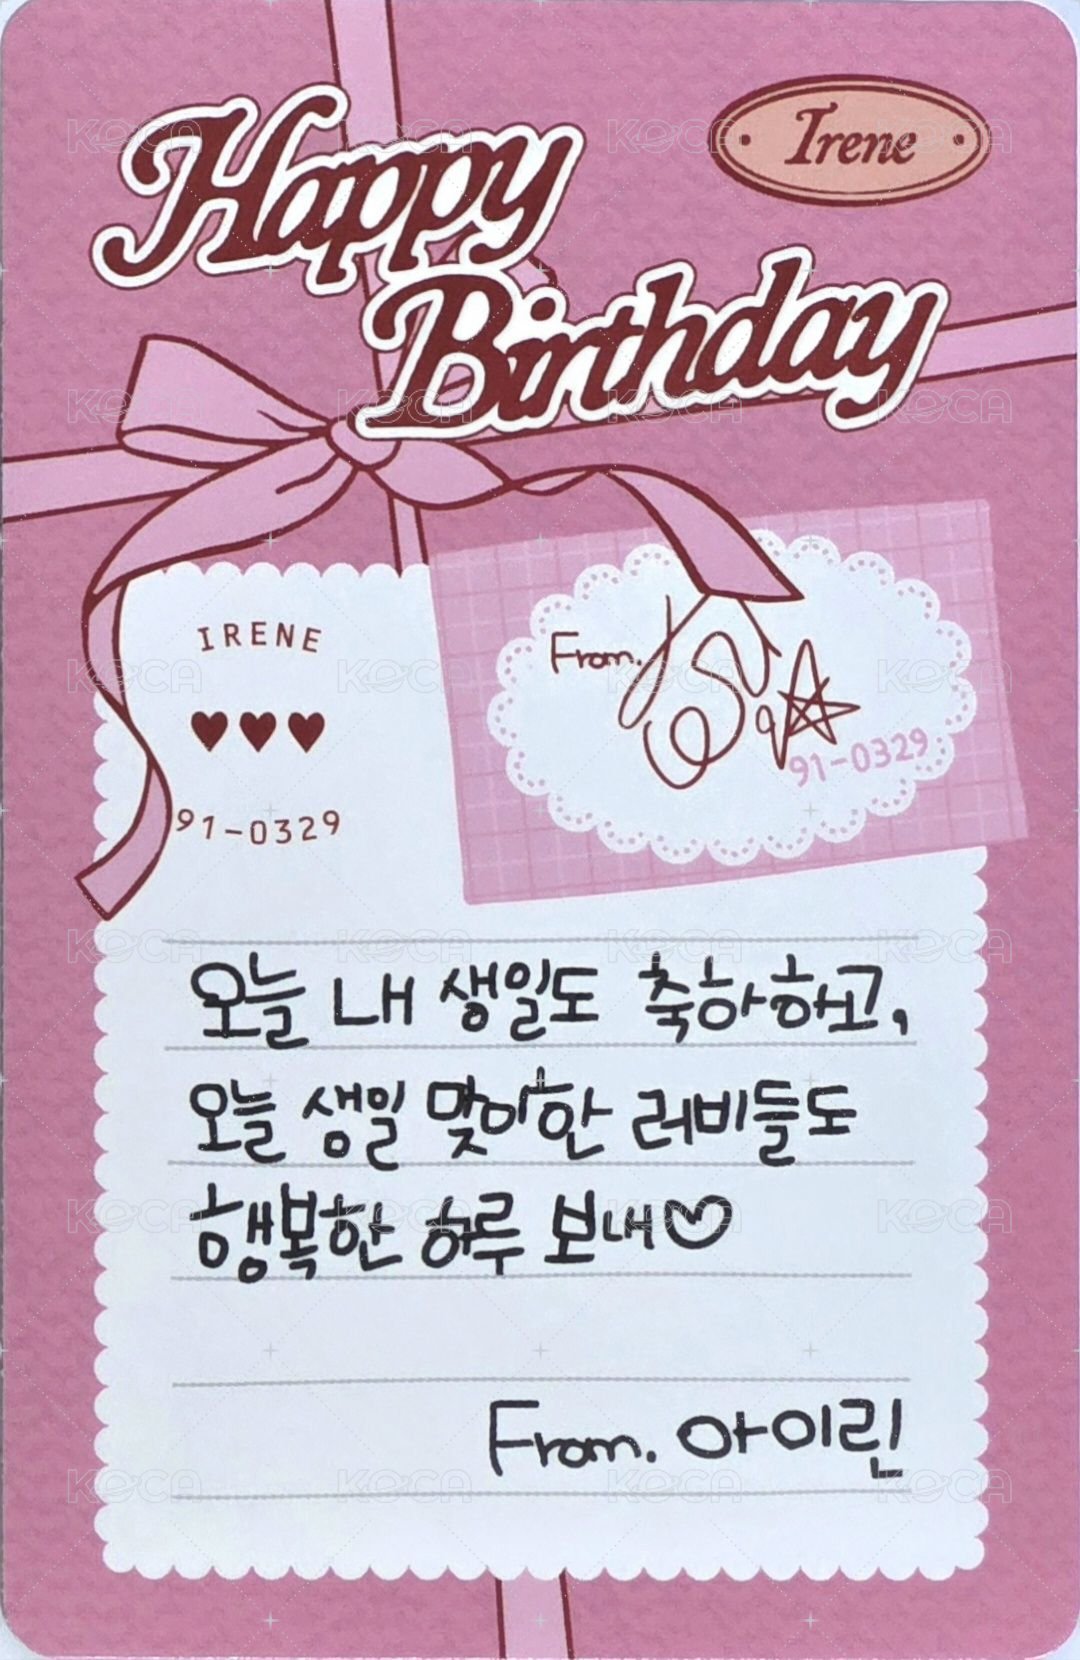 Happy
Birthday
Irene
IRENE
♥♥♥
91-0329
From.
91-0329
오늘 내 생일도 축하하고,
오늘 생일 맞이한 러비들도
행복한 하루 보내♡
From. 아이린
KOCA